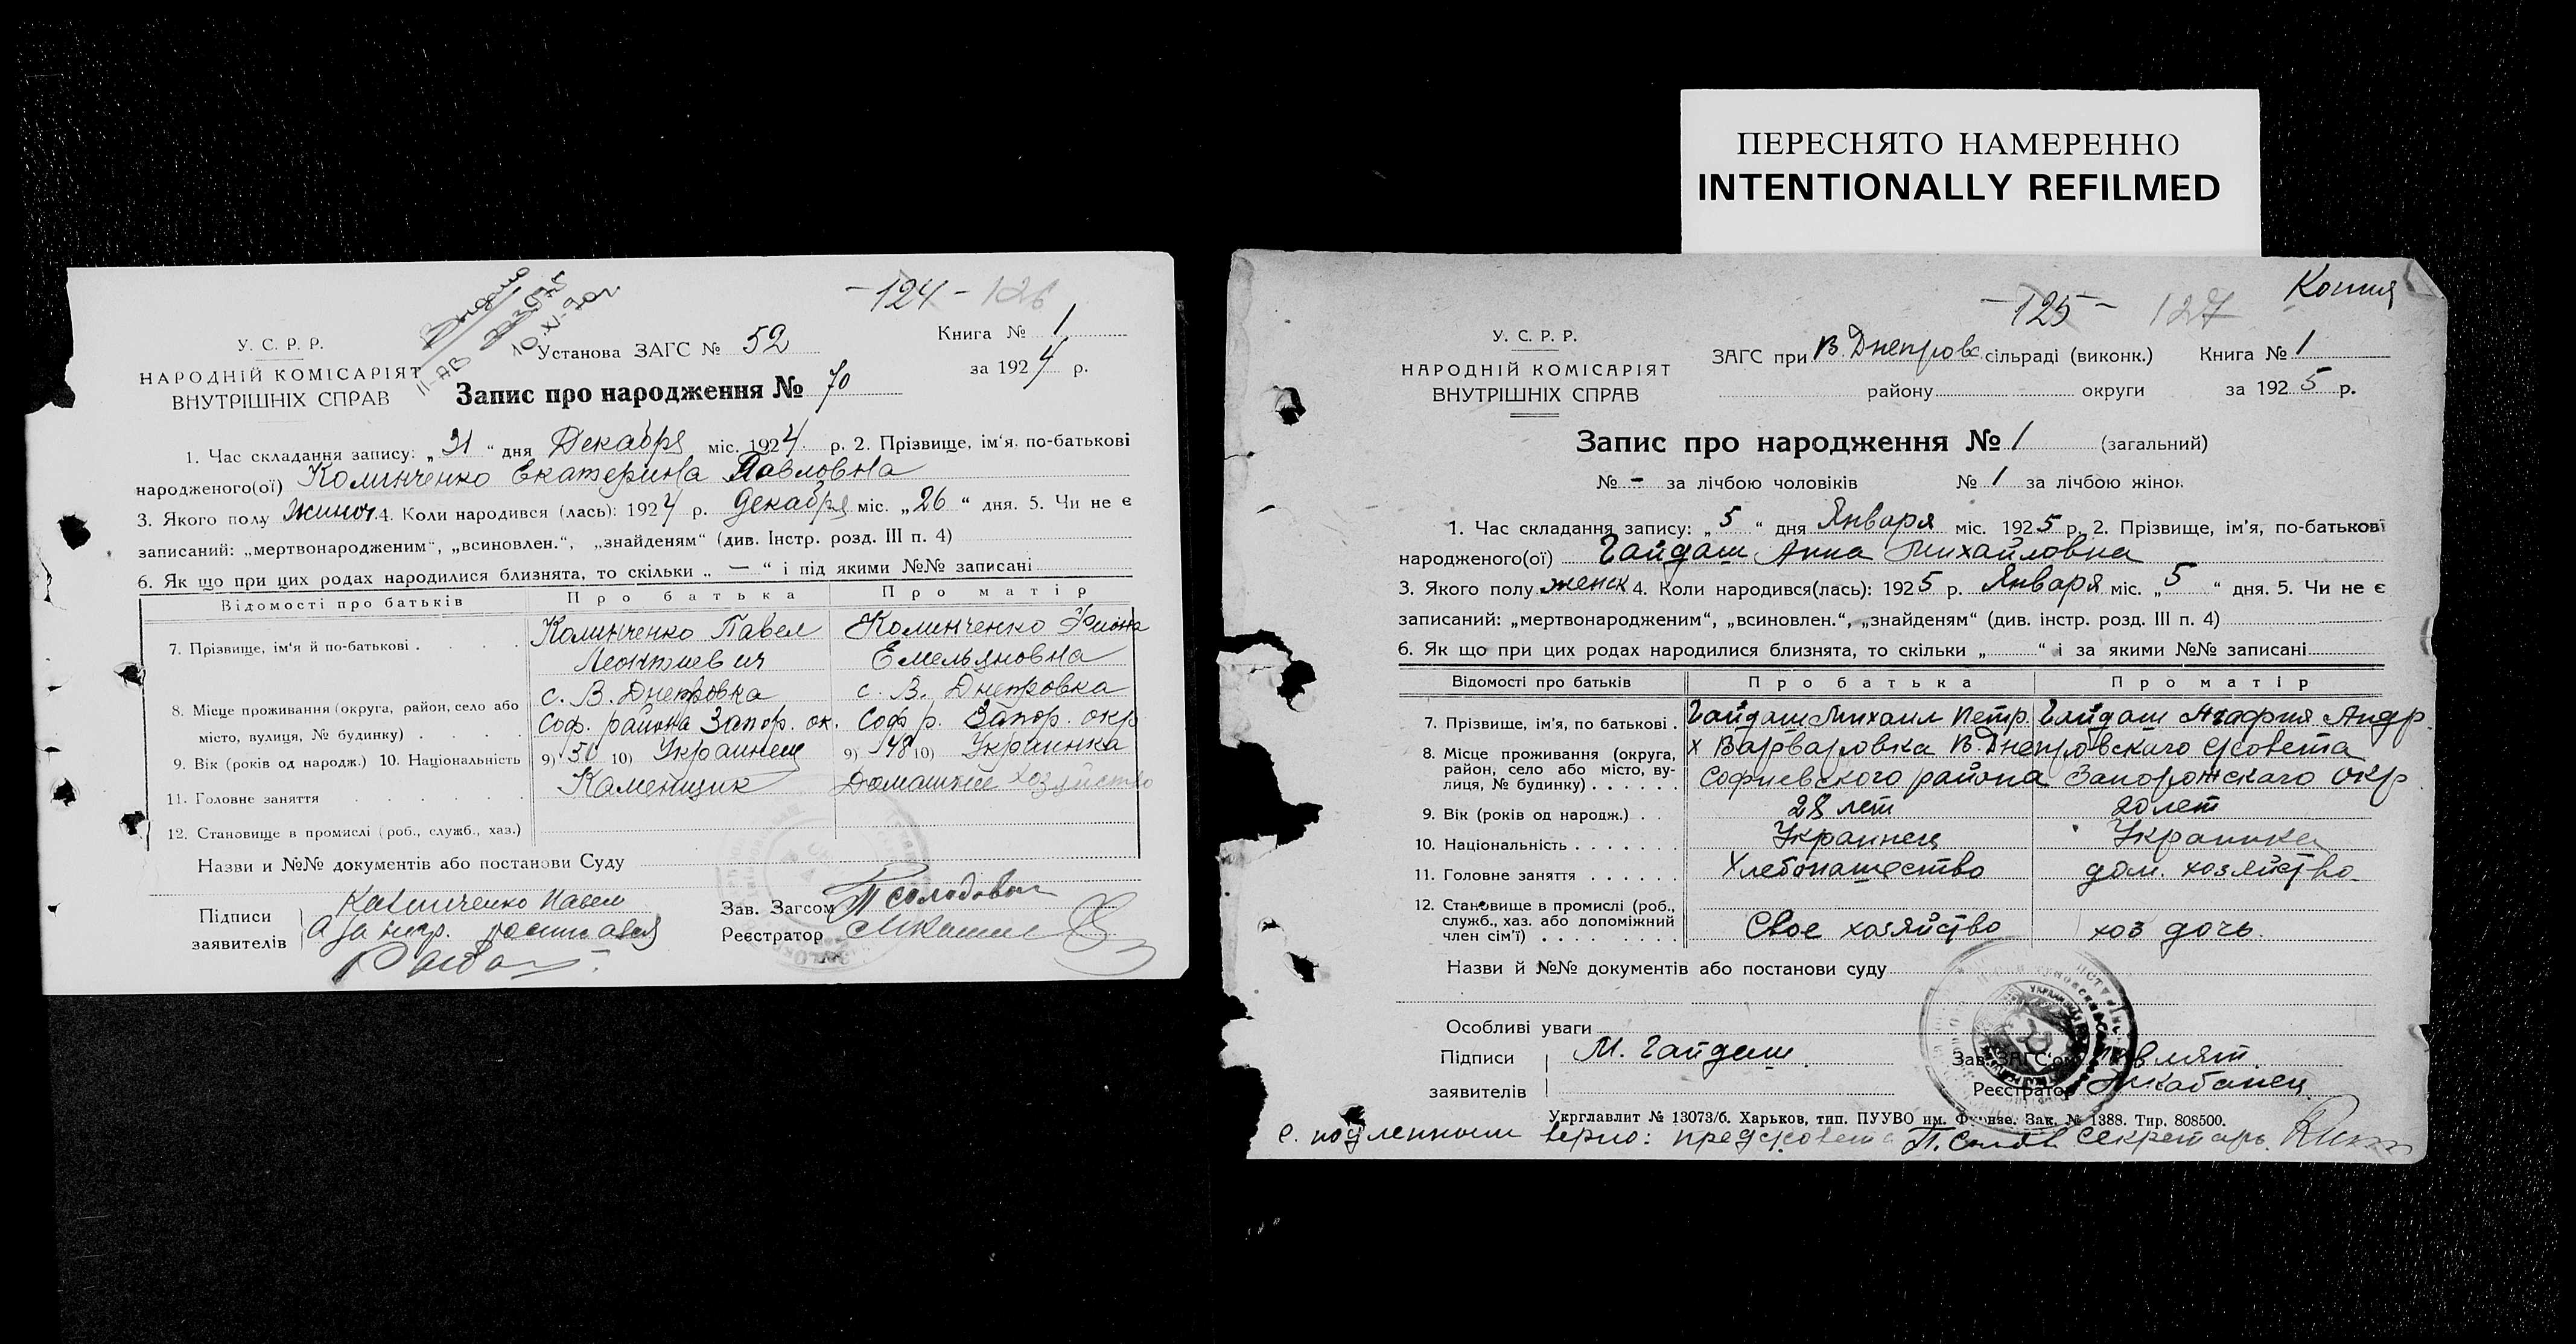 ПЕРЕСНЯТО НАМЕРЕННО
INTENTIONALLY REFILMED
-124- 126
10.XI-70г.
У. С. Р. Р.
НАРОДНІЙ КОМІСАРІЯТ
ВНУТРІШНІХ СПРАВ
Установа ЗАГС № 52
Книга № 1
за 1924 р.
Запис про народження № 70
1. Час складання запису: „31“ дня Декабря міс. 1924 р. 2. Прізвище, ім‘я, по-батькові
народженого(ої) Калинченко Екатерина Павловна
3. Якого полу жиноч. 4. Коли народився (лась): 1924 р. Декабря міс. „26“ дня. 5. Чи не є
записаний: „мертвонародженим“, „всиновлен.“, „знайденям“ (див. Інстр. розд. III п. 4)
6. Як що при цих родах народилися близнята, то скільки „ — “ і під якими №№ записані
Відомості про батьків Про батька Про матір
7. Прізвище, ім‘я й по-батькові . Калинченко Павел Калинченко
Леонтиевич Емельяновна
8. Місце проживання (округа, район, село або с. В. Днепровка с. В. Днепровка
місто, вулиця, № будинку) . Соф. района Запор. ок. Соф р. Запор. окр
9. Вік (років од народж.) 10. Національність 9) 50 10) Украинец 9) 48 10) Украинка
11. Головне заняття Каменщик Домашнее хозяйство
12. Становище в промислі (роб., служб., хаз.)
Назви и №№ документів або постанови Суду
Підписи заявителів Калинченко Павел
а за негр. росписався
Зав. Загсом П Солодовн
Реєстратор
Копия
-125- 127
У. С. Р. Р.
НАРОДНІЙ КОМІСАРІЯТ
ВНУТРІШНІХ СПРАВ
ЗАГС при В. Днепровс. сільраді (виконк.)
району округи
Книга № 1
за 1925 р.
Запис про народження № 1 (загальний)
№ - за лічбою чоловіків № 1 за лічбою жінок
1. Час складання запису: „5“ дня Января міс. 1925 р. 2. Прізвище, ім‘я, по-батькові
народженого(ої) Гайдаш Анна Михайловна
3. Якого полу женск 4. Коли народився(лась): 1925 р. Января міс. „5“ дня. 5. Чи не є
записаний: „мертвонародженим“, „всиновлен.“, „знайденям“ (див. інстр. розд. III п. 4)
6. Як що при цих родах народилися близнята, то скільки „ “ і за якими №№ записані
Відомості про батьків Про батька Про матір
7. Прізвище, ім‘я, по батькові . Гайдаш Михаил Петр. Гайдаш Агафия Андр.
8. Місце проживання (округа, район, село або місто, вулиця, № будинку) х Варваровка В. Днепровского с/совета
Софиевского района Запорожскаго окр
9. Вік (років од народж.) . . 28 лет 20 лет
10. Національність . Украинец Украинка
11. Головне заняття . Хлебопашество дом. хозяйство
12. Становище в промислі (роб., служб., хаз. або допоміжний член сім‘ї) . Свое хозяйство хоз дочь.
Назви й №№ документів або постанови суду
Особливі уваги
Підписи заявителів М. Гайдаш
Зав. ЗАГС‘ом
Реєстратор Шкабанец
Укрглавлит № 13073/б. Харьков, тип. ПУУВО им. Фрунзе. Зак. № 1388. Тир. 808500.
С. подленным верно: пред с/совета П. Секретарь